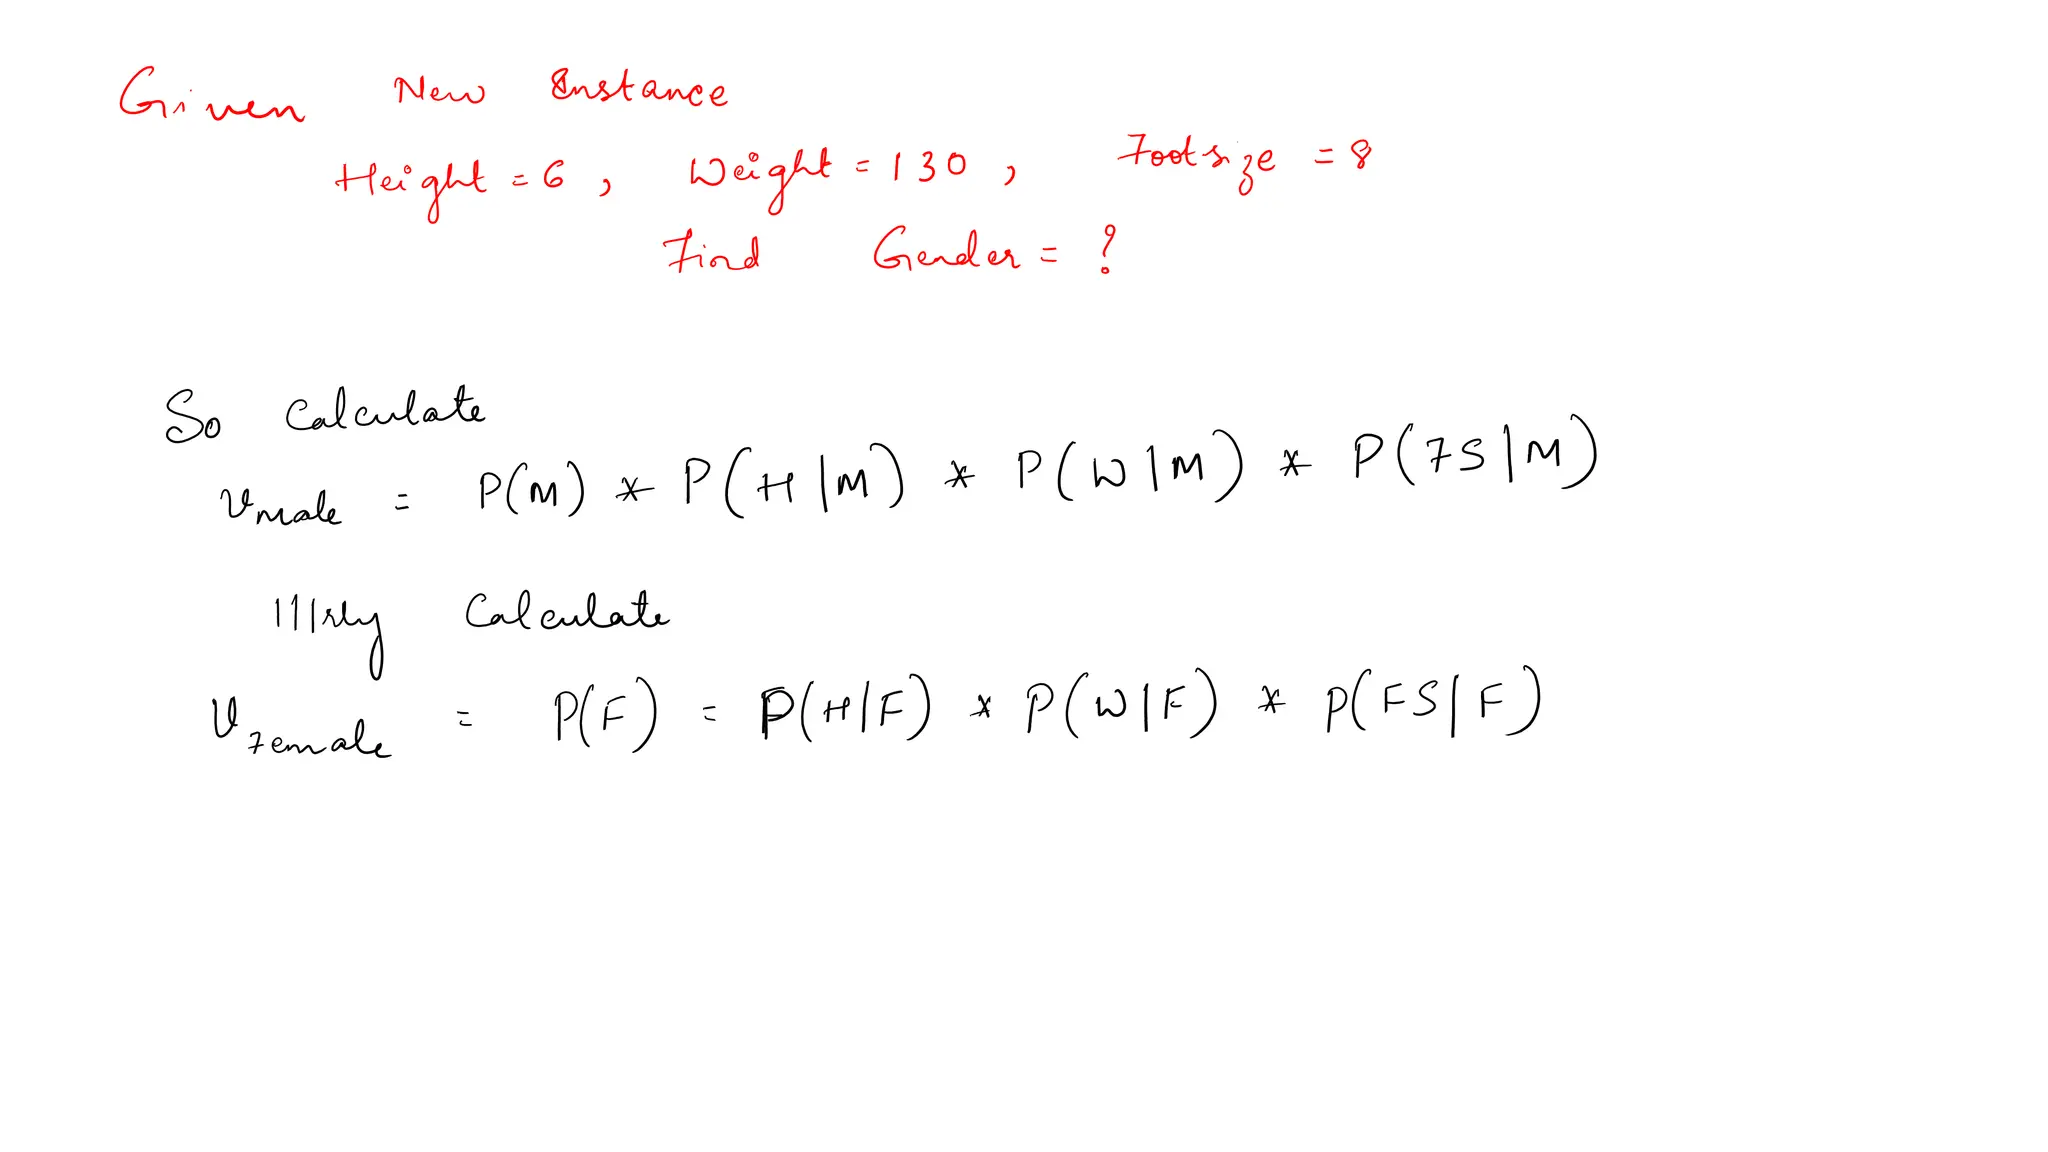 Given New Instance
Height = 6, Weight = 130, Footsize = 8
Find Gender = ?
So Calculate
v male = P(M) * P(H|M) * P(W|M) * P(FS|M)
111rly Calculate
v Female = P(F) = P(H|F) * P(W|F) * P(FS|F)